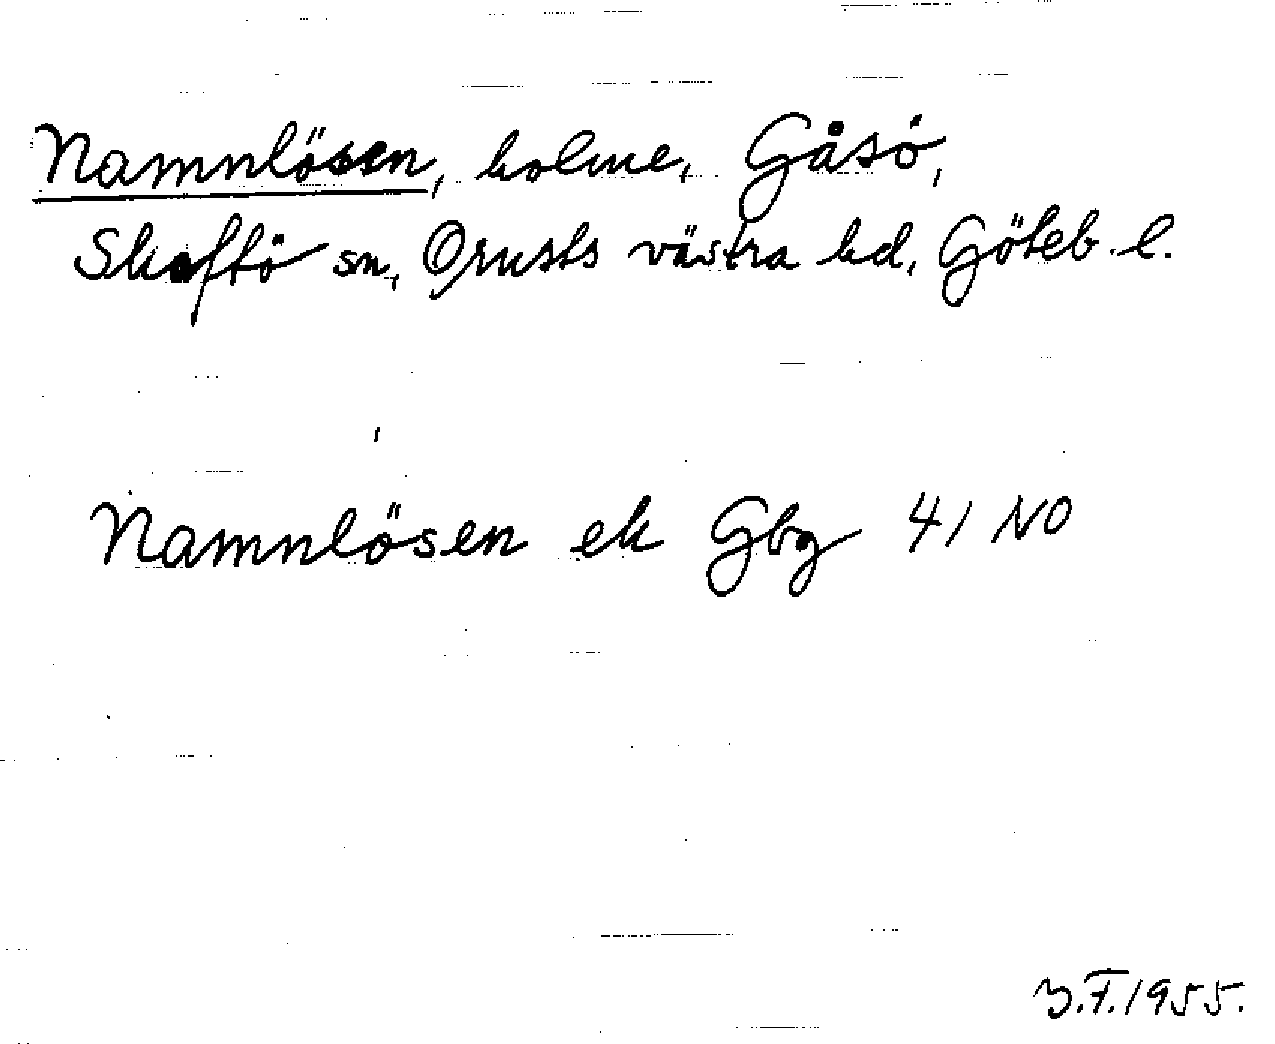 Namnlösen, holme, Gåsö,
Skaftö sn, Orusts västra hd, Göteb. l.
Namnlösen ek Gbg 41 NO
1955.